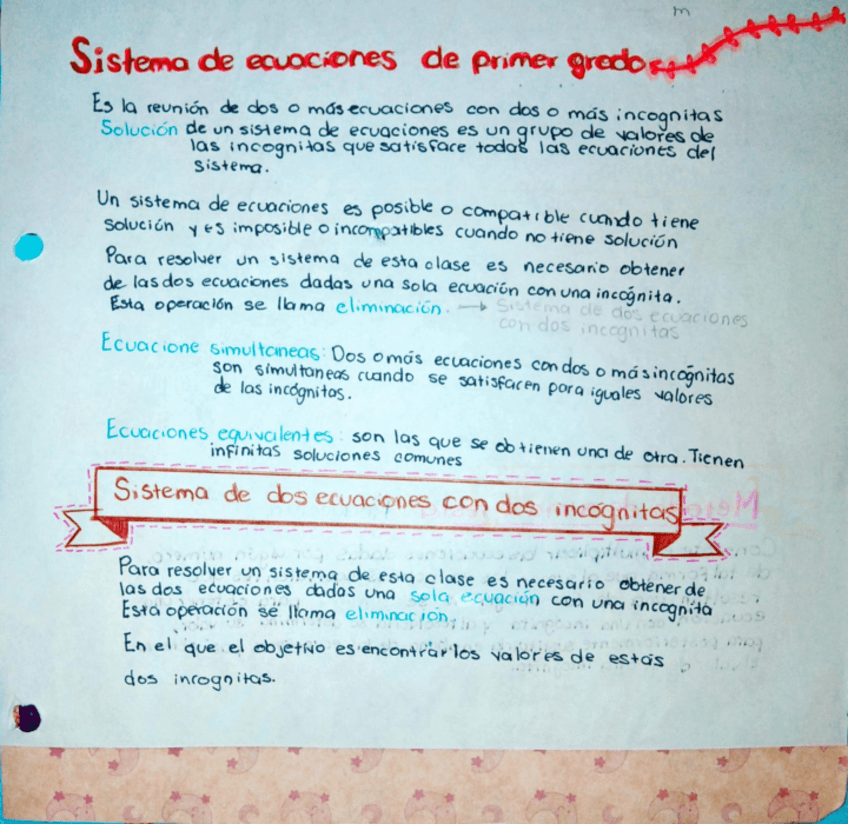 m
Sistema de ecuaciones de primer grado
Es la reunión de dos o más ecuaciones con dos o más incognitas
Solución de un sistema de ecuaciones es un grupo de valores de
las incognitas que satisface todas las ecuaciones del
sistema.
Un sistema de ecuaciones es posible o compatible cuando tiene
solución y es imposible o incompatibles cuando no tiene solución
Para resolver un sistema de esta clase es necesario obtener
de las dos ecuaciones dadas una sola ecuación con una incógnita.
Esta operación se llama eliminación. → Sistema de dos ecuaciones
con dos incognitas
Ecuacione simultaneas: Dos o más ecuaciones con dos o más incógnitas
son simultaneas cuando se satisfacen para iguales valores
de las incógnitas.
Ecuaciones equivalentes: son las que se obtienen una de otra. Tienen
infinitas soluciones comunes
Sistema de dos ecuaciones con dos incógnitas
Para resolver un sistema de esta clase es necesario obtener de
las dos ecuaciones dadas una sola ecuación con una incognita
Esta operación se llama eliminación.
En el que el objetivo es encontrar los valores de estas
dos incognitas.